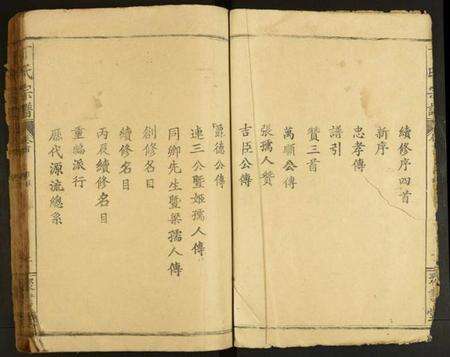 續修序四首
新序
忠孝傳
譜引
贊三首
萬順公傳
張孺人贊
吉臣公傳
德公傳
連三公暨姬孺人傳
同卿先生暨梁孺人傳
創修名目
續修名目
丙辰續修名目
重編派行
歷代源流總系
氏宗譜
卷首